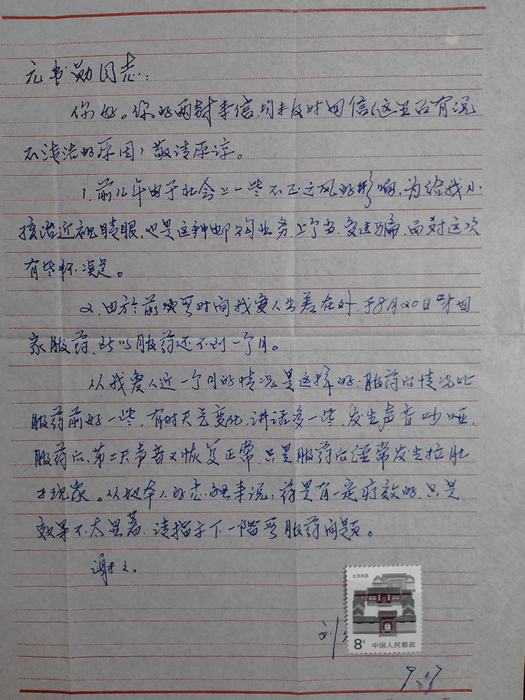 元书勋同志:
你好。你的两封来信,均未及时回信(这里留有说
不浅洁的原因)敬请原谅。
1.前几年由于社会上一些不正之风的影响,为给我小
孩治近视眼,也是这种邮购业务上了当,受过骗,而对这次
有些怀疑。
2.由于前一段时间我爱人出差在外,于8月20日才回
家服药,所以服药还不到一个月。
从我爱人近一个月的情况是这样的:服药后情况比
服药前好一些,有时天气变化,讲话多一些,发生声音吵哑,
服药后,第二天声音又恢复正常,只是服药后经常发生拉肚
子现象。从她本人的态度来说:药是有一定疗效的,只是
效果不太显著,请指示下一阶段服药问题。
谢谢。
刘
北京民居
8分 中国人民邮政
9.17